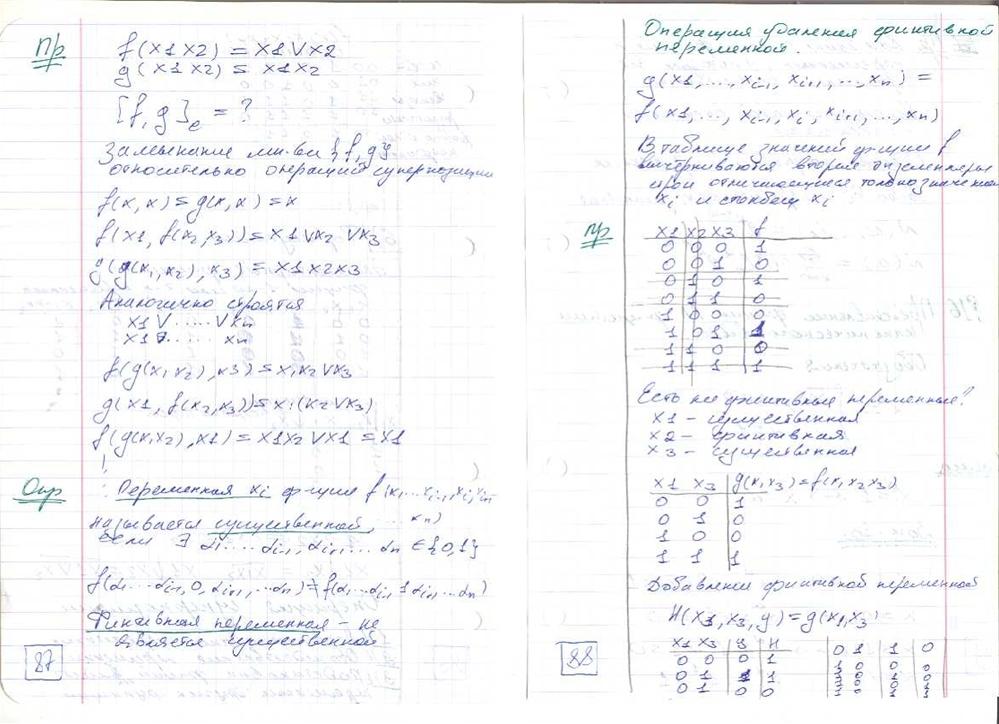 Пр
f(x1 x2) = x1 V x2
g(x1 x2) = x1 x2
[f,g]c = ?
Замыкание мн-ва {f,g}
относительно операций суперпозиции
f(x,x) = g(x,x) = x
f(x1, f(x2,x3)) = x1 V x2 V x3
g(g(x1,x2),x3) = x1 x2 x3
Аналогично строятся
x1 V ..... V xn
x1 ..... xn
f(g(x1,x2),x3) = x1x2 V x3
g(x1, f(x2,x3)) = x1(x2 V x3)
f(g(x1x2),x1) = x1x2 V x1 = x1
Опр
Переменная xi ф-ции f(x1...xi-1,xi,xi+1
... xn)
называется существенной,
если ∃ α1.... αi-1, αi+1... αn ∈ {0,1}
f(α1...αi-1, 0, αi+1, ...αn) ≠ f(α1...αi-1 1 αi+1...αn)
Фиктивная переменная - не
является существенной
87
Операция удаления фиктивной
переменной.
g(x1,...,xi-1, xi+1,...,xn) =
f(x1,..., xi-1, xi, xi+1,...,xn)
В таблице значений ф-ции f
вычеркиваются вторые экземпляры
строк отличающиеся только значением
xi и столбец xi
Пр
x1 x2 x3 f
0 0 0 1
0 0 1 0
0 1 0 1
0 1 1 0
1 0 0 0
1 0 1 1
1 1 0 0
1 1 1 1
Есть ли фиктивные переменные?
x1 - существенная
x2 - фиктивная
x3 - существенная
x1 x3 g(x1,x3)=f(x1,x2x3)
0 0 1
0 1 0
1 0 0
1 1 1
Добавление фиктивной переменной
H(x1,x3,y)=g(x1,x3)
x1 x3 y H
0 0 0 1
0 0 1 1
0 1 0 0
0 1 1 0
88